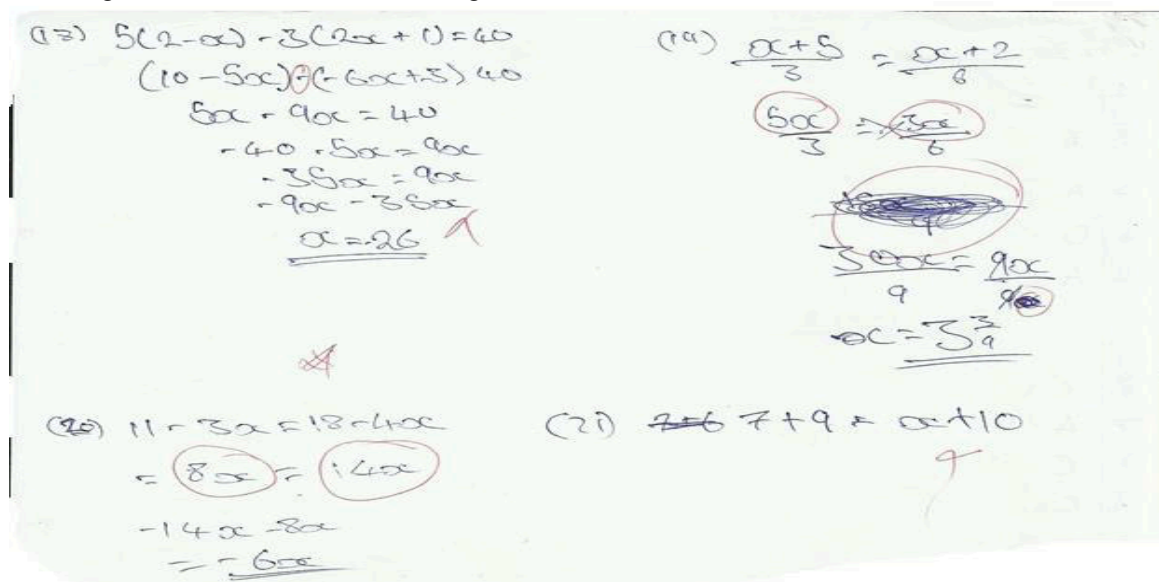 5(2-x) - 3(2x+1) = 40
(10-5x) - (-6x+3) 40
5x - 9x = 40
-40 -5x = 9x
-35x = 9x
-9x -35x
x = -26
(19) x+5/3 = x+2/6
5x/3 = 3x/6
30x/9 = 9x/9
x = 3 3/9
(20) 11 - 3x = 18 - 4x
= 8x = 14x
-14x -8x
= -6x
(21) 7+9 = x+10